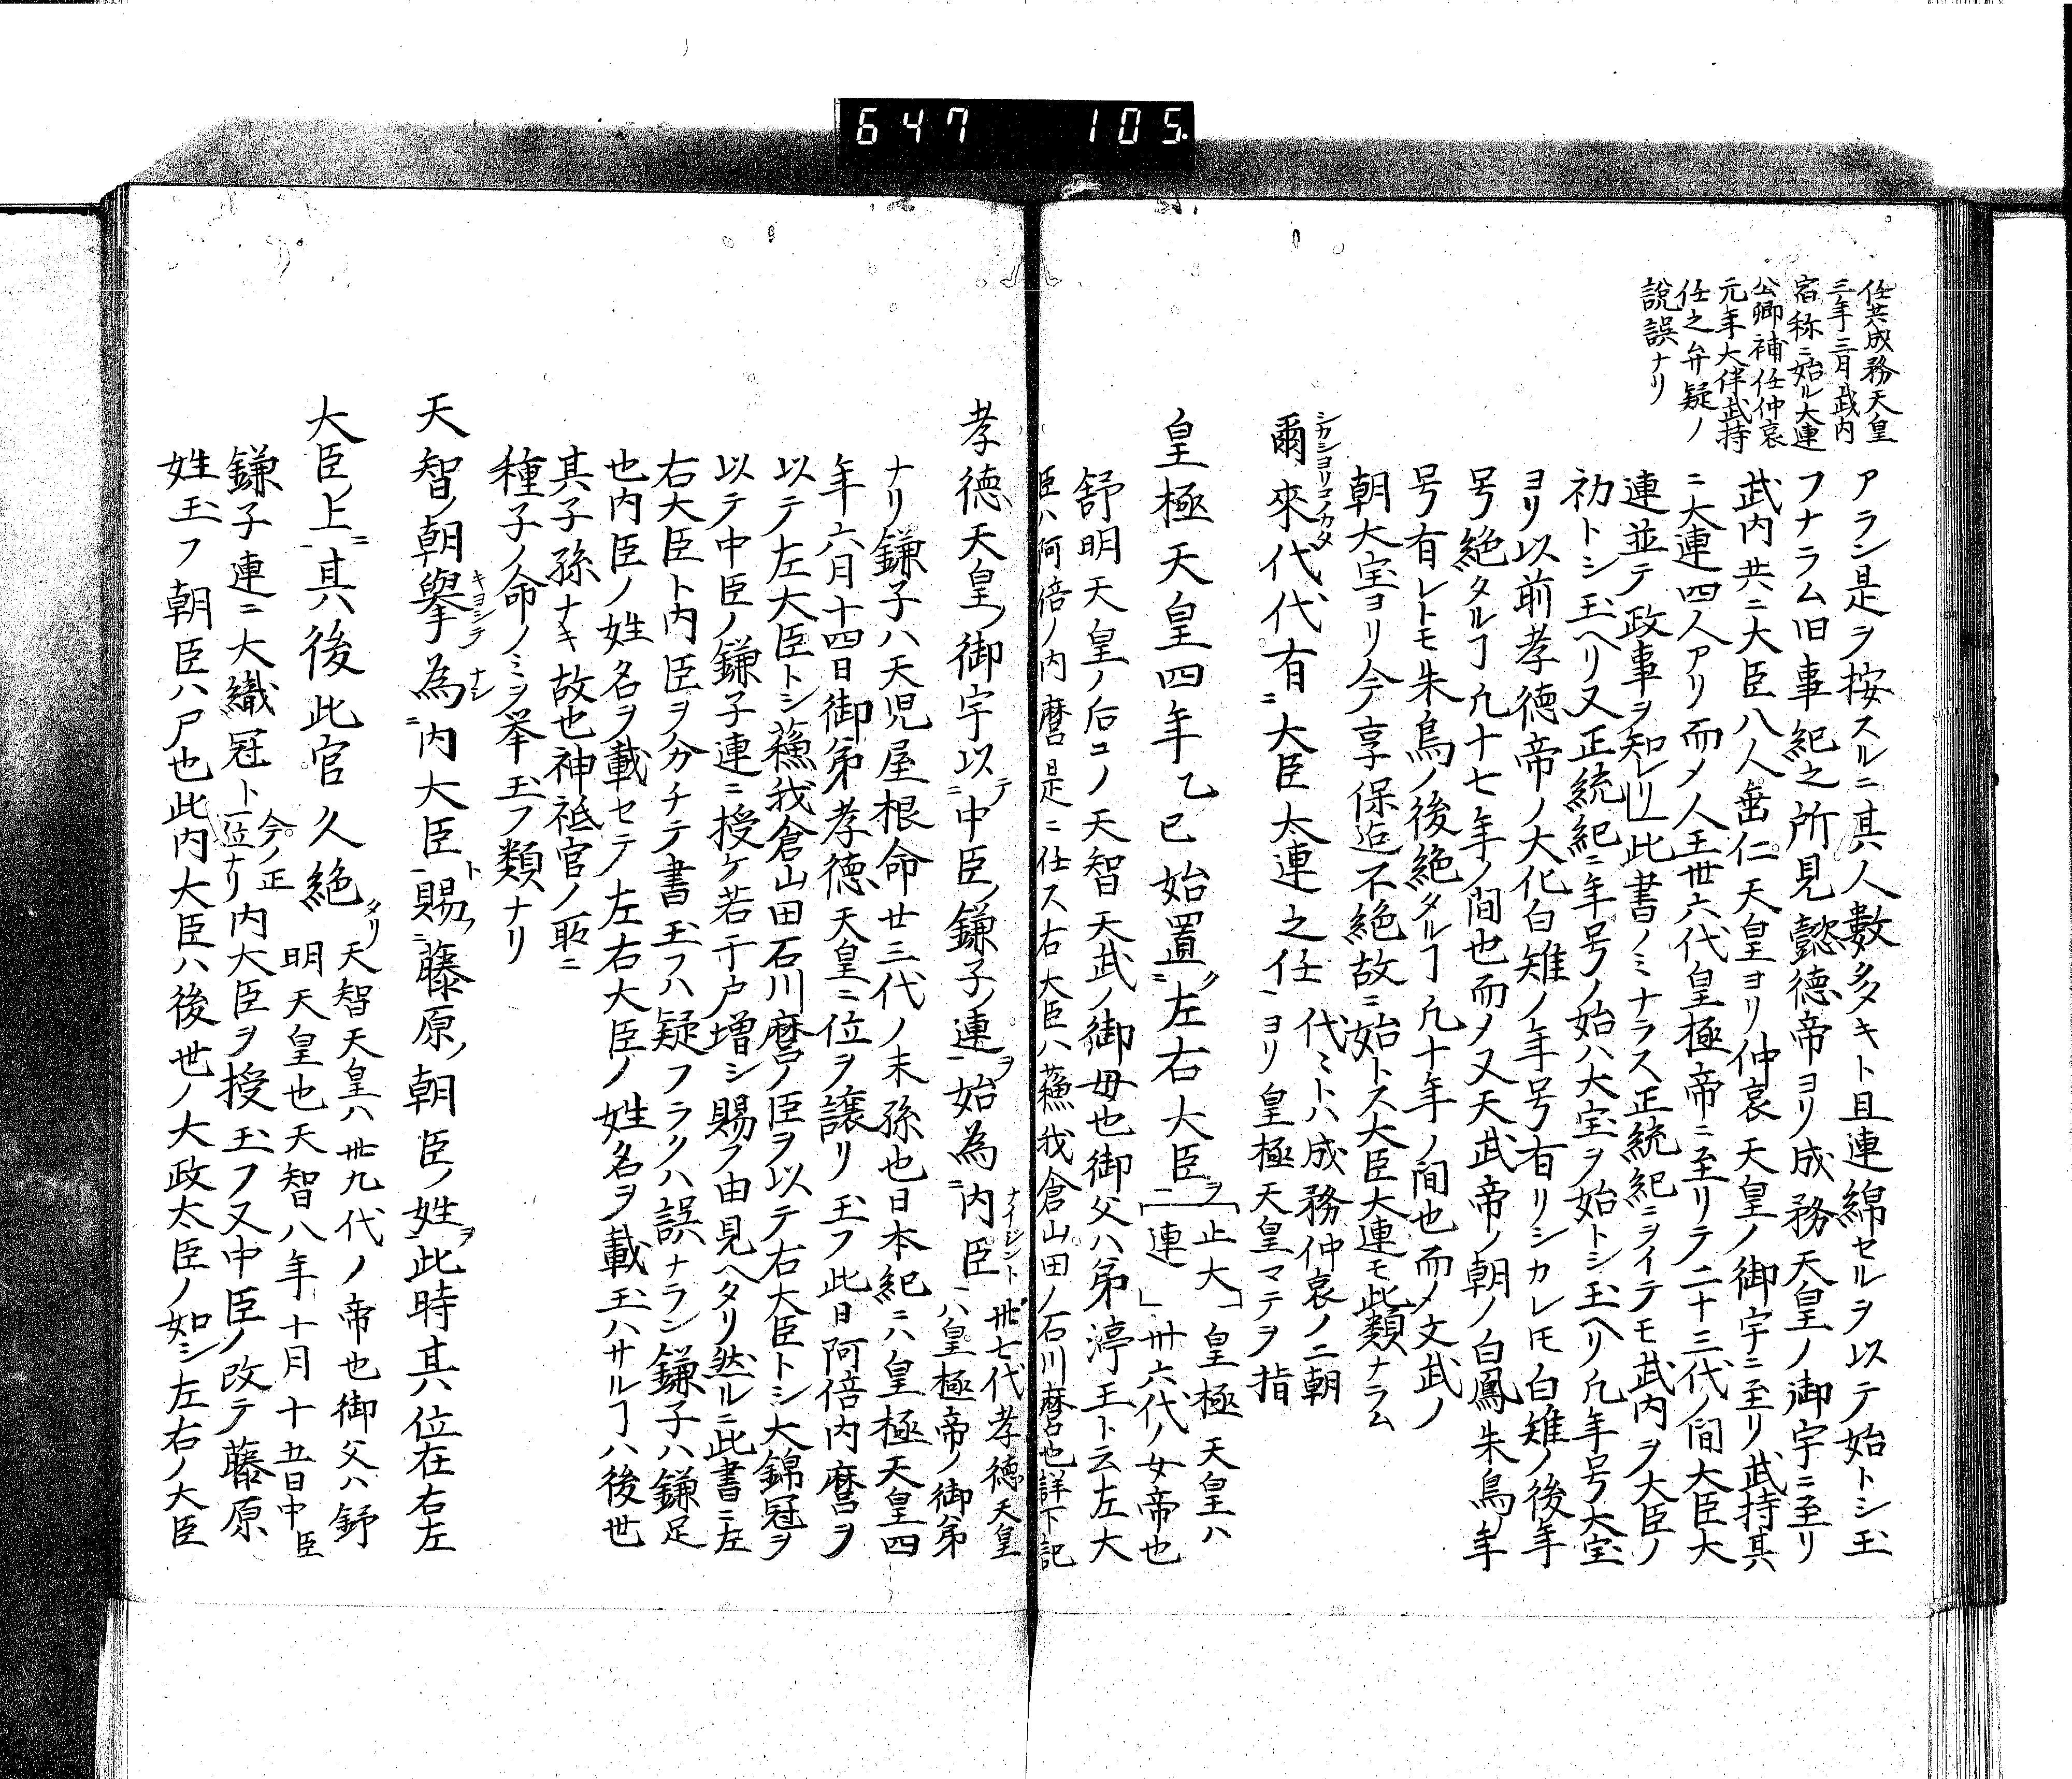 647 105
任共成務天皇
三年三月武内
宿称ニ始ル大連
公卿補任仲哀
元年大伴武持
任之弁疑ノ
說誤ナリ
アラン是ヲ按スルニ其人數多キト且連綿セルヲ以テ始トシ玉
フナラム旧事紀之所見懿德帝ヨリ成務天皇ノ御宇ニ至リ
武内共ニ大臣八人垂仁天皇ヨリ仲哀天皇ノ御宇ニ至リ武持其
ニ大連四人アリ而メ人王卅六代皇極帝ニ至リテ二十三代ノ間大臣大
連並テ政事ヲ知レリ此書ノミナラス正統紀ニヲイテモ武内ヲ大臣ノ
初トシ玉ヘリ又正統紀ニ年号ノ始ハ大宝ヲ始トシ玉ヘリ凢年号ノ大宝
ヨリ以前孝徳帝ノ大化白雉ノ年号有リシカレ𪜈白雉ノ後年
号絶タルヿ凢十七年ノ間也而メ又天武帝ノ朝ノ白鳳朱鳥ノ年
号有レトモ朱鳥ノ後絶タルヿ凢十年ノ間也而メ文武ノ
朝大宝ヨリ今享保迄不絶故ニ始トス大臣大連モ此類ナラム
爾來代代有ニ大臣大連之任一
シカシヨリコノカタ
代ミトハ成務仲哀ノ二朝
ヨリ皇極天皇マテヲ指
皇極天皇四年乙巳始置ク二左右大臣ヲ
「止大」
一「連」
皇極天皇ハ
卅六代ノ女帝也
舒明天皇ノ后コノ天智天武ノ御母也御父ハ第渟王ト云左大
臣ハ阿倍ノ内麿是ニ任ス右大臣ハ蘓我倉山田ノ石川麿也詳下記
孝徳天皇ノ御宇以テ二中臣ノ鎌子ノ連ヲ一始為ニ内臣ト一
ナイジン
卅七代孝徳天皇
ハ皇極帝ノ御弟
ナリ鎌子ハ天児屋根命廿三代ノ末孫也日本紀ニハ皇極天皇四
年六月十四日御弟孝徳天皇ニ位ヲ譲リ玉フ此日阿倍内麿ヲ
以テ左大臣トシ蘓我倉山田石川麿ノ臣ヲ以テ右大臣トシ大錦冠ヲ
以テ中臣ノ鎌子連ニ授ケ若干戸増シ賜フ由見ヘタリ然ルニ此書ニ左
右大臣ト内臣ヲ分チテ書玉フハ疑フラクハ誤ナラン鎌子ハ鎌足
也内臣ノ姓名ヲ載セテ左右大臣ノ姓名ヲ載玉ハサルヿハ後世
其子孫ナキ故也神祗官ノ所ニ
種子ノ命ノミヲ挙玉フ類ナリ
天智ノ朝擧為ニ内大臣ト一賜フ二藤原ノ朝臣ノ姓ヲ此時其ハ位在右左
キヨシテ ナシ
大臣ノ上ニ一其ハ後此官久絶タリ
天智天皇ハ卅九代ノ帝也御父ハ舒
明天皇也天智八年十月十五日中臣
鎌子連ニ大織冠ト
今ノ正
一位ナリ
内大臣ヲ授玉フ又中臣ノ改テ藤原
姓玉フ朝臣ハ尸也此内大臣ハ後世ノ大政太臣ノ如シ左右ノ大臣